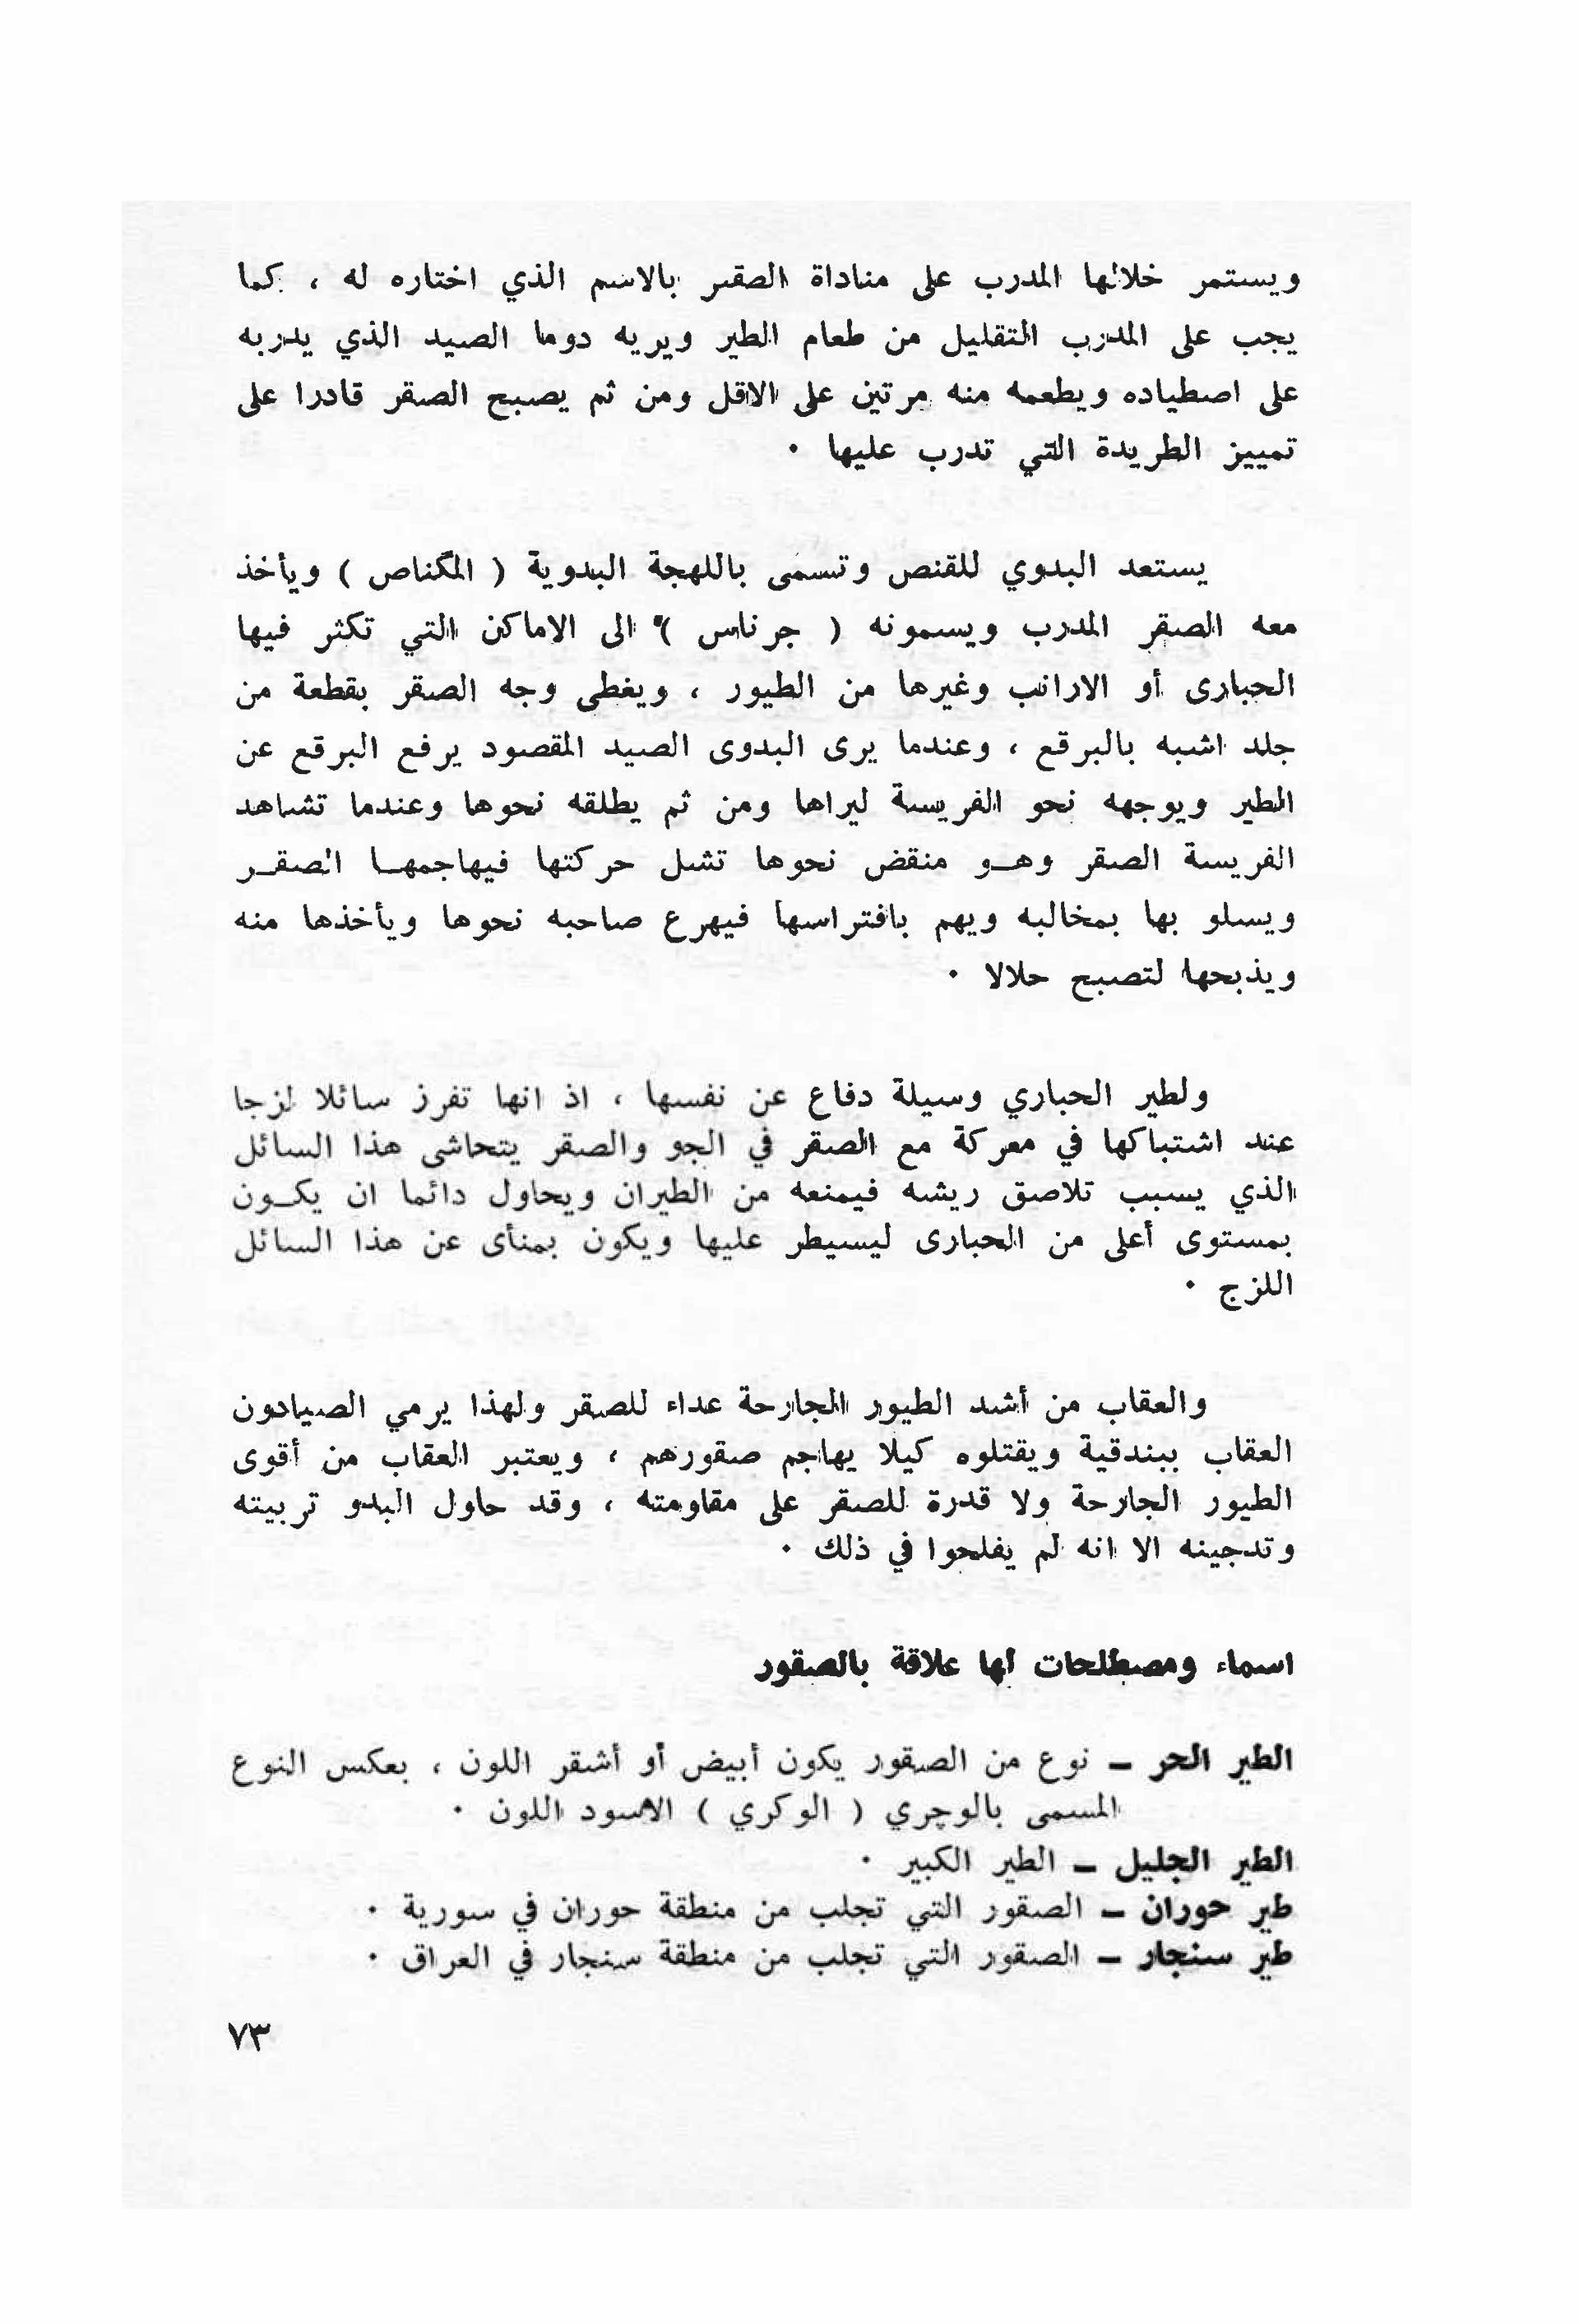 ويستمر خلالها المدرب على مناداة الصقر بالاسم الذي اختاره له ، كما
يجب على المدرب التقليل من طعام الطير ويريه دوما الصيد الذي يدربه
على اصطياده ويطعمه منه مرتين على الاقل ومن ثم يصبح الصقر قادرا على
تمييز الطريدة التي تدرب عليها ٠
يستعد البدوي للقنص وتسمى باللهجة البدوية ( المگناص ) ويأخذ
معه الصقر المدرب ويسمونه ( جرناس ) الى الاماكن التي تكثر فيها
الحبارى أو الارانب وغيرها من الطيور ، ويغطى وجه الصقر بقطعة من
جلد اشبه بالبرقع ، وعندما يرى البدوى الصيد المقصود يرفع البرقع عن
الطير ويوجهه نحو الفريسة ليراها ومن ثم يطلقه نحوها وعندما تشاهد
الفريسة الصقر وهــو منقض نحوها تشل حركتها فيهاجمهــا الصقــر
ويسلو بها بمخالبه ويهم بافتراسها فيهرع صاحبه نحوها ويأخذها منه
ويذبحها لتصبح حلالا ٠
ولطير الحباري وسيلة دفاع عن نفسها ، اذ انها تفرز سائلا لزجا
عند اشتباكها في معركة مع الصقر في الجو والصقر يتحاشى هذا السائل
الذي يسبب تلاصق ريشه فيمنعه من الطيران ويحاول دائما ان يكــون
بمستوى أعلى من الحبارى ليسيطر عليها ويكون بمنأى عن هذا السائل
اللزج ٠
والعقاب من أشد الطيور الجارحة عداء للصقر ولهذا يرمي الصيادون
العقاب ببندقية ويقتلوه كيلا يهاجم صقورهم ، ويعتبر العقاب من أقوى
الطيور الجارحة ولا قدرة للصقر على مقاومته ، وقد حاول البدو تربيته
وتدجينه الا انه لم يفلحوا في ذلك ٠
اسماء ومصطلحات لها علاقة بالصقور
الطير الحر – نوع من الصقور يكون أبيض أو أشقر اللون ، بعكس النوع
المسمى بالوچري ( الوكري ) الاسود اللون ٠
الطير الجليل – الطير الكبير ٠
طير حوران – الصقور التي تجلب من منطقة حوران في سورية ٠
طير سنجار – الصقور التي تجلب من منطقة سنجار في العراق ٠
٧٣